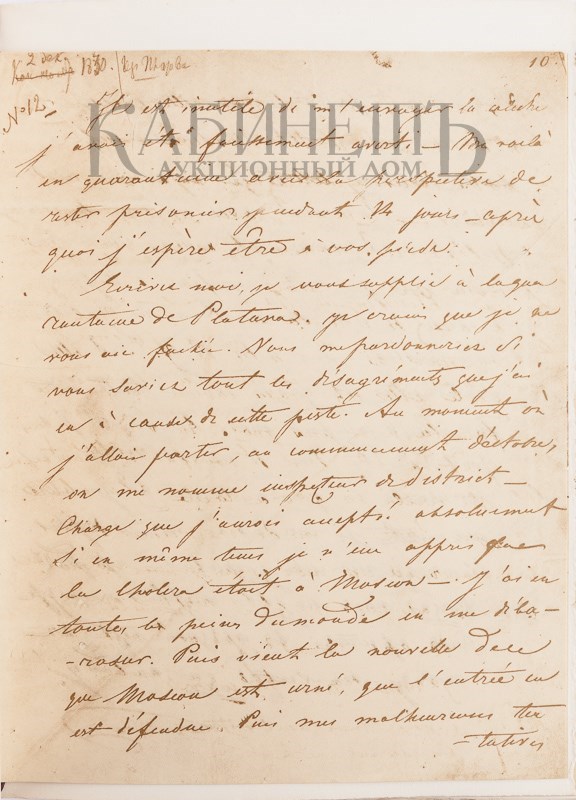 2 дек. 1830.
10.
№ 12.
КАБИНЕТЪ
АУКЦИОННЫЙ ДОМ
Il est inutile de m'envoyer la calèche
j'avois été faussement averti — Me voilà
en quarantaine avec la perspective de
rester prisonier pendant 14 jours — après
quoi j'espère être à vos pieds.
Ecrivez moi, je vous supplie à la qua
rantaine de Platava. Je crains que je ne
vous aie fachée. Vous me pardonneriez si
vous saviez tout les désagréments que j'ai
eu à cause de cette peste. Au moment où
j'allois partir, au commencement d'octobre,
on me nomme inspecteur de district —
Charge que j'aurois accepté absolument
si en même tems je n'eus appris que
la cholera étoit à Moscou —. J'ai eu
toutes les peines du monde en me déba-
-rasser. Puis vient la nouvelle
que Moscou est cerné, que l'entrée en
est défendue. Puis mes malheureuses ten
-tatives